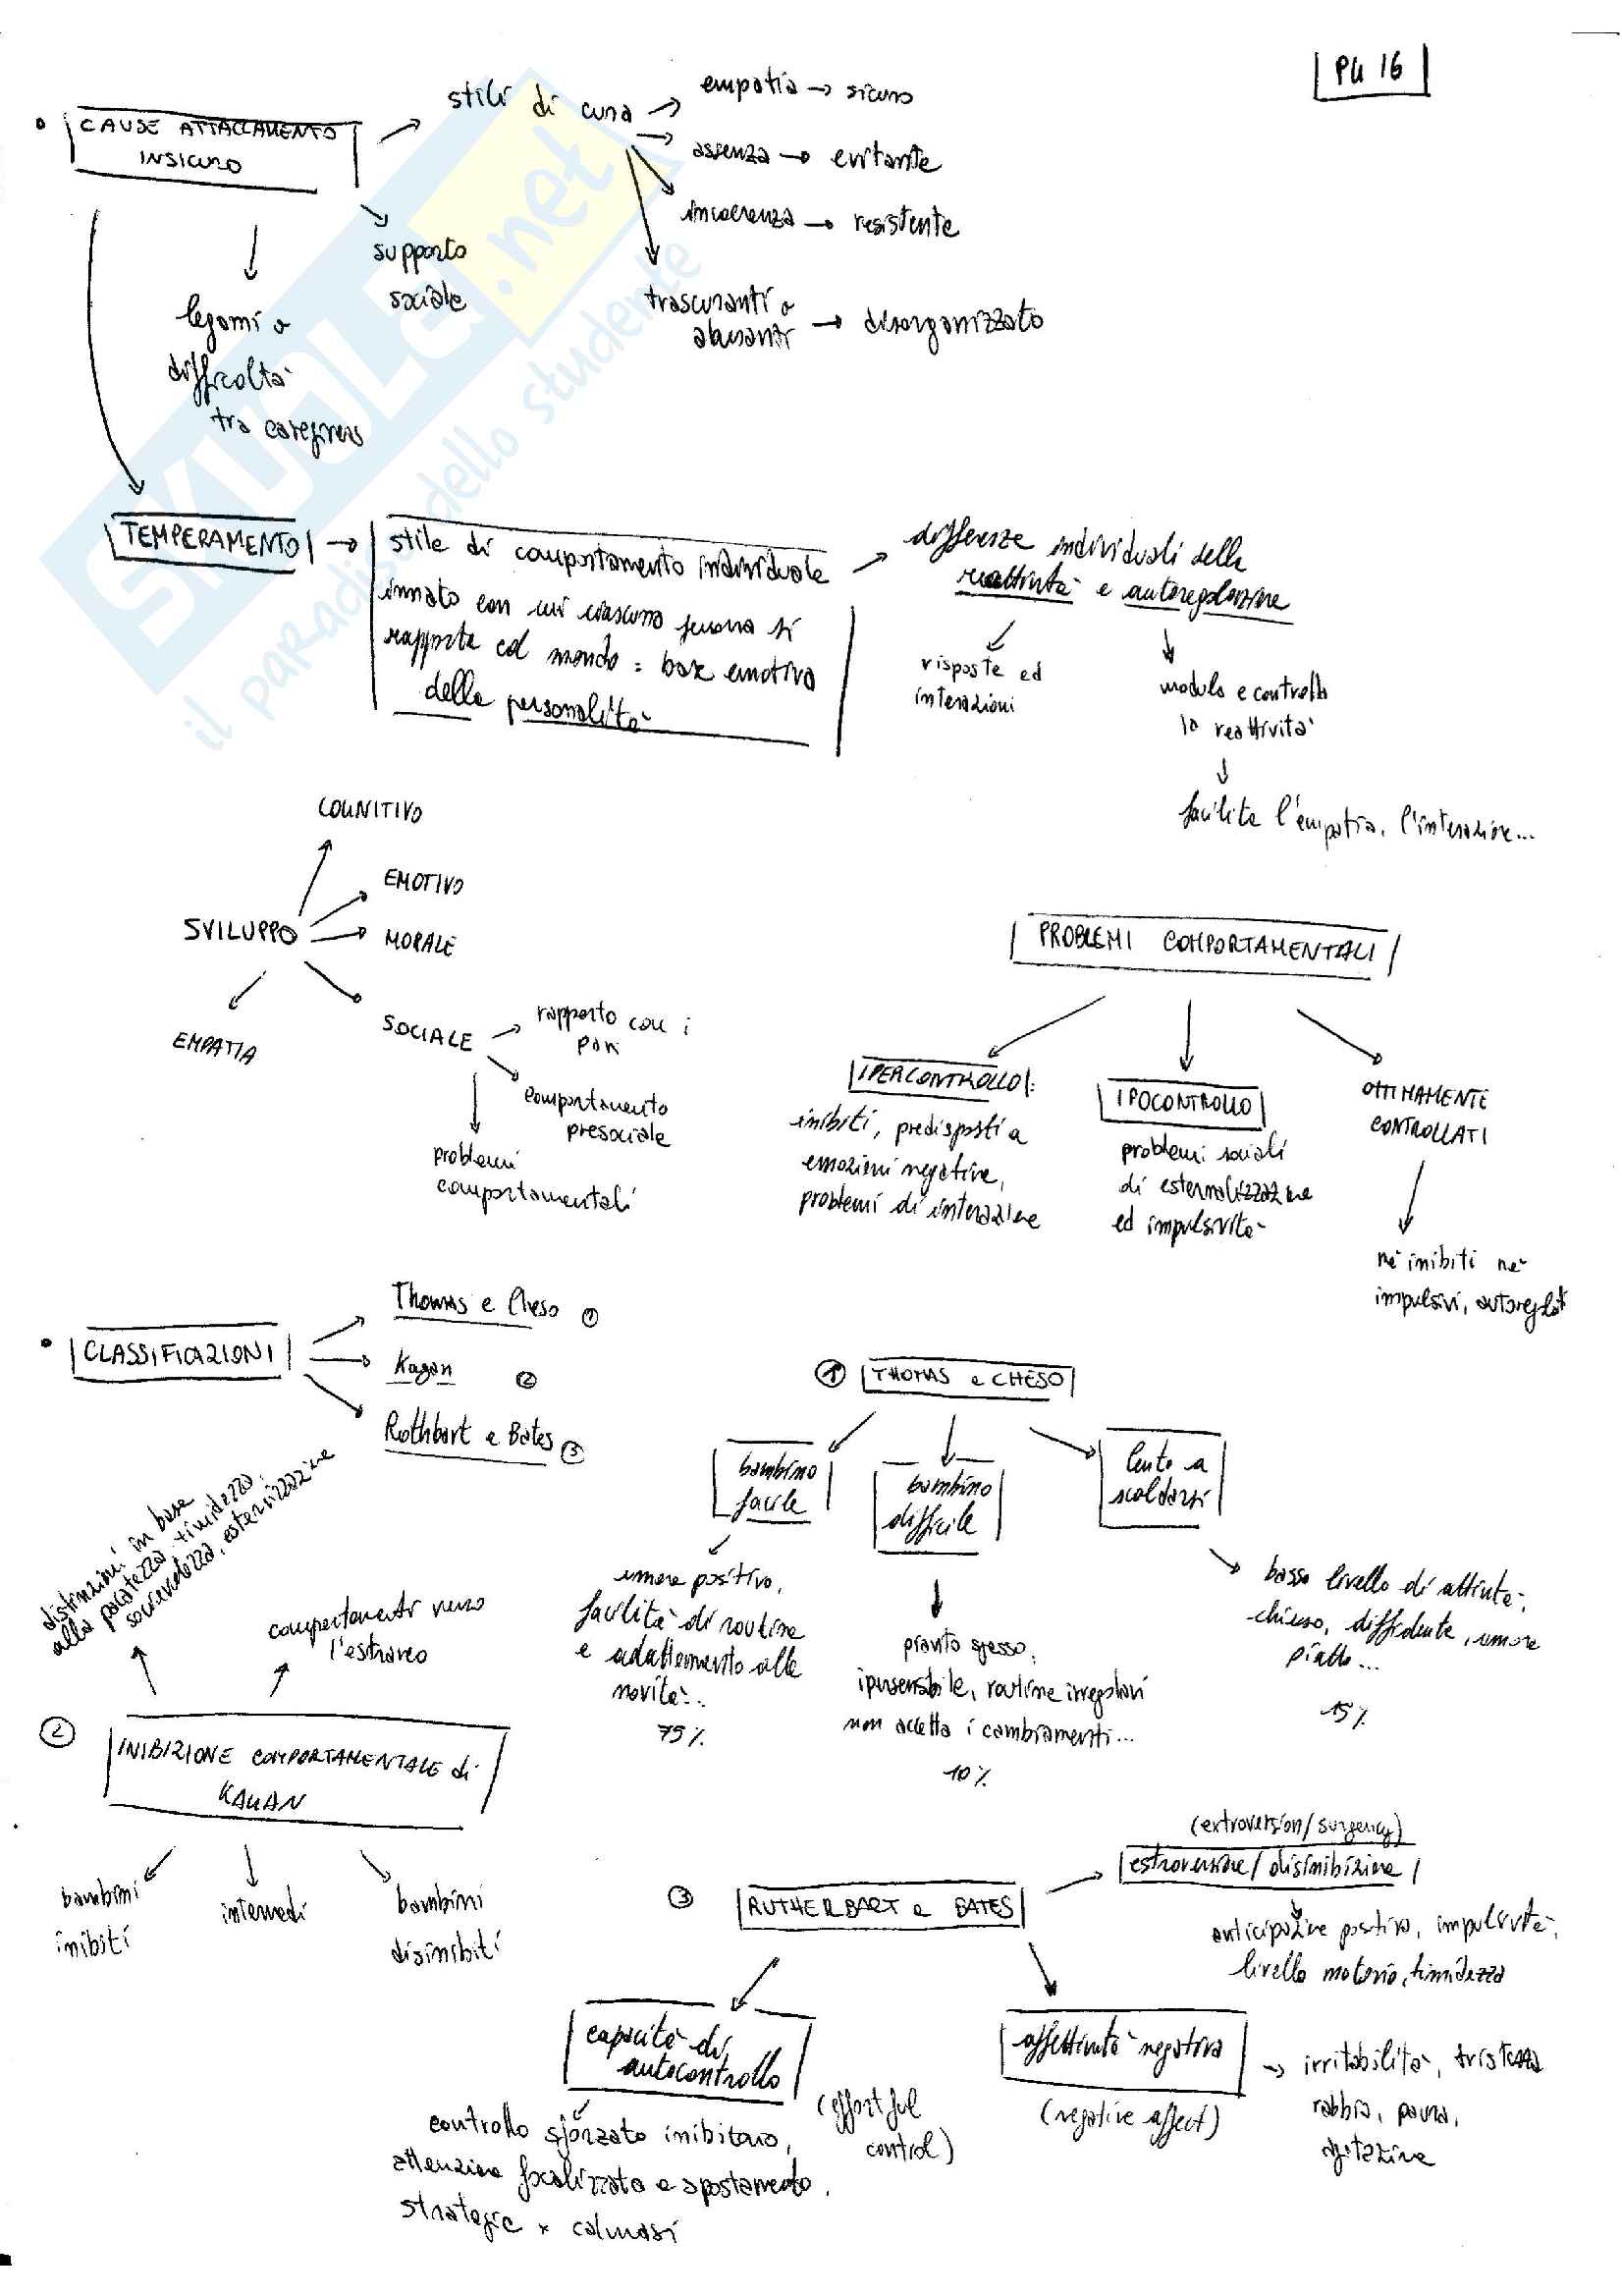 PG 16
CAUSE ATTACCAMENTO
INSICURO
stili di cura
empatia → sicuro
assenza → evitante
incoerenza → resistente
trascuranti o
abusanti → disorganizzato
supporto
sociale
legami o
difficoltà
tra caregivers
SKUOLA.net
il paradiso dello studente
TEMPERAMENTO →
stile di comportamento individuale
innato con cui ciascuna persona si
rapporta col mondo = base emotiva
della personalità
differenze individuali della
reattività e autoregolazione
risposte ed
interazioni
modula e controlla
la reattività
facilita l'empatia, l'interazione...
SVILUPPO
COGNITIVO
EMOTIVO
MORALE
SOCIALE
EMPATIA
rapporto con i
pari
comportamento
presociale
problemi
comportamentali
PROBLEMI COMPORTAMENTALI
IPERCONTROLLO:
inibiti, predisposti a
emozioni negative,
problemi di interazione
IPOCONTROLLO
problemi sociali
di esternalizzazione
ed impulsività
OTTIMAMENTE
CONTROLLATI
nè inibiti nè
impulsivi, autoregolati
CLASSIFICAZIONI
Thomas e Cheso ①
Kagan ②
Rothbart e Bates ③
① THOMAS e CHESO
bambino
facile
umore positivo,
facilità di routine
e adattamento alle
novità...
75%
bambino
difficile
pianto spesso,
ipersensibile, routine irregolari
non accetta i cambiamenti...
10%
lento a
scaldarsi
basso livello di attività,
chiuso, diffidente, umore
piatto...
15%
distinzioni in base
alla pacatezza, timidezza,
socievolezza, esternizzazione
comportamenti verso
l'estraneo
② INIBIZIONE COMPORTAMENTALE di
KAGAN
bambini
inibiti
intermedi
bambini
disinibiti
③ RUTHERBART e BATES
(extroversion/surgency)
estroversione/disinibizione
anticipazione positiva, impulsività,
livello motorio, timidezza
capacità di
autocontrollo
(effortful
control)
controllo sforzato inibitorio,
attenzione focalizzata e spostamento,
strategie x calmarsi
affettività negativa
(negative affect)
→ irritabilità, tristezza
rabbia, paura,
agitazione